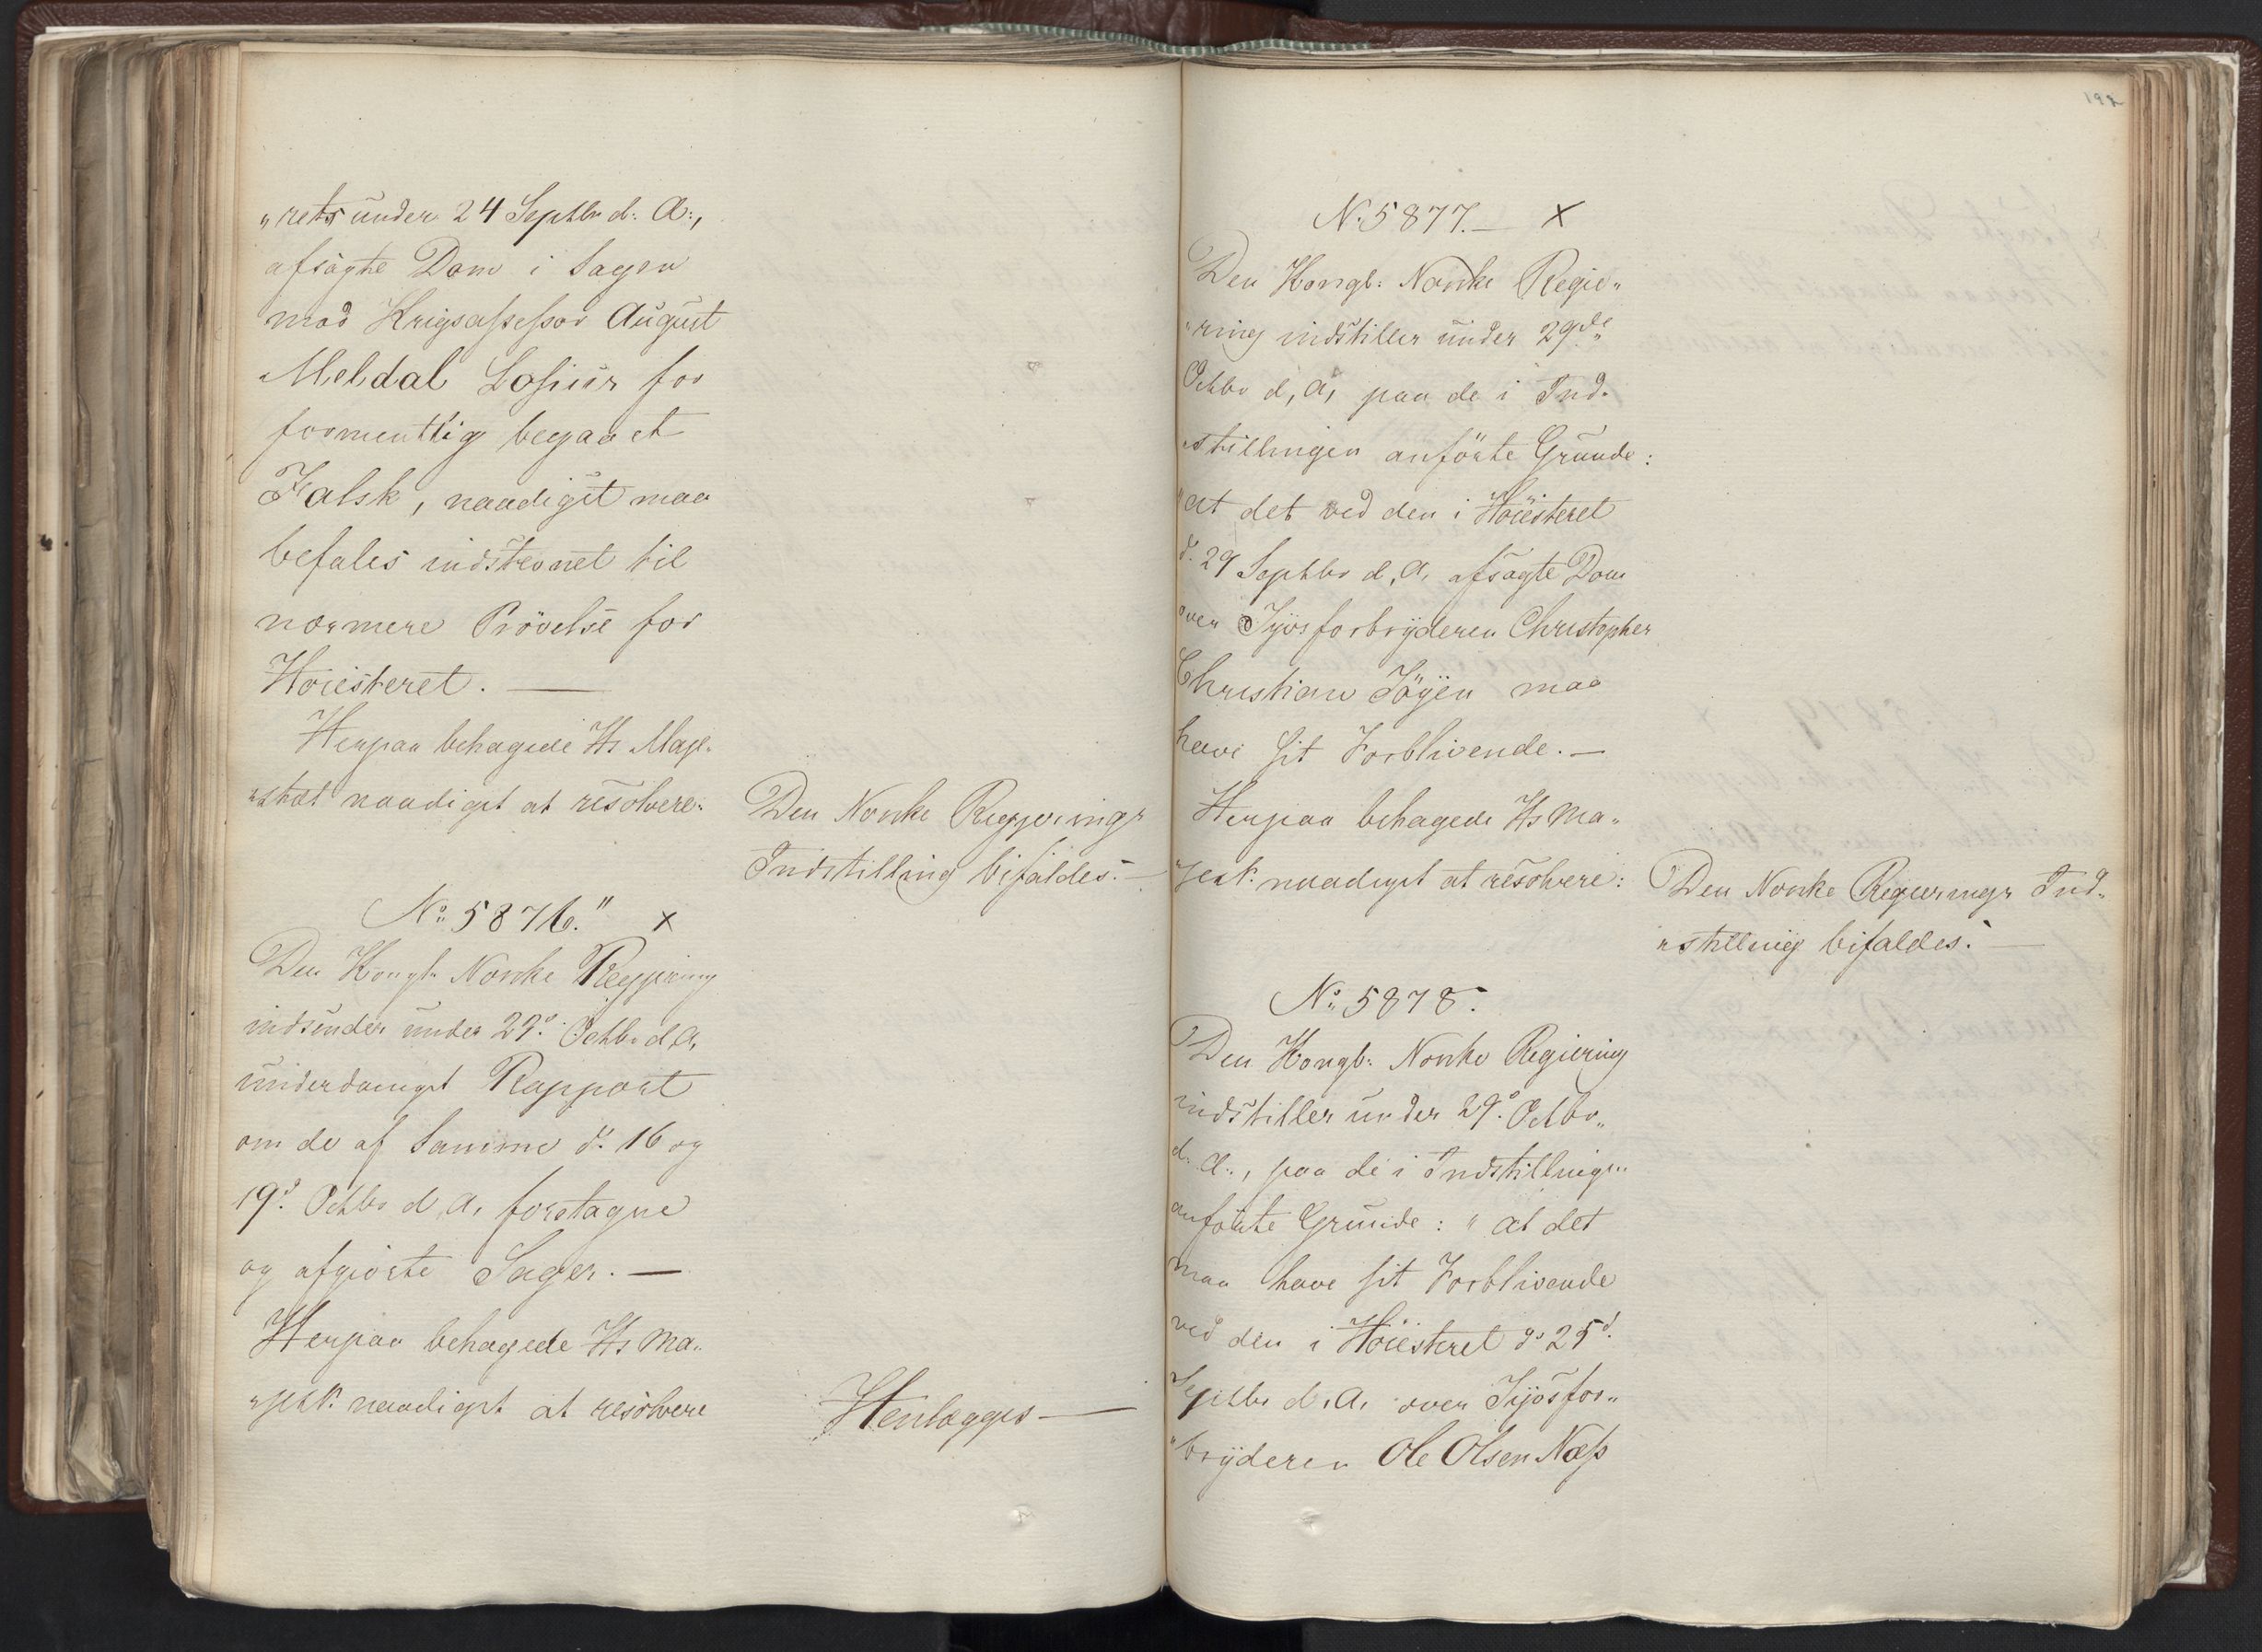 „rets under 24 Septbr d: A:,
afsagte Dom i Sagen
mod Krigsassessor August
Meldal Lasius for
formentlig begaaet
Falsk, naadigst maa
befales indstevnet til
nærmere Prövelse for
Höiesteret. —
Herpaa behagede Hs Maje„
„stæt naadigst at resolvere:
Den Norske Regjerings
Indstilling bifaldes. —
No 5876." x
Den Kongl. Norske Regjering
indsender under 29d. Octbr d. A,
underdanigst Rapport
om de af Samme d. 16 og
19d. Octbr d. A. foretagne
og afgiorte Sager. —
Herpaa behagede Hs Ma„
„jest. naadigst at resolvere
Henlægges —
192
N. 5877. — x
Den Kongl: Norske Regie„
„ring indstiller under 29de
Octbr d, A, paa de i Ind„
„stillingen anförte Grunde:
"at det ved den i Höiesteret
d. 29 Septbr d. A. afsagte Dom
over Tyvsforbryderen Christopher
Christian Töyen maa
have sit Forblivende. —
Herpaa behagede Hs Ma„
jest. naadigst at resolvere:
Den Norske Regierings Ind„
„stilling bifaldes. —
No 5878.
Den Kongl: Norske Regiering
indstiller under 29d. Octbr„
d. A., paa de i Indstillingen
anförte Grunde: "at det
maa have sit Forblivende
ved den i Höiesteret d. 25d.
Septbr d. A. over Tyvsfor„
„bryderen Ole Olsen Næss